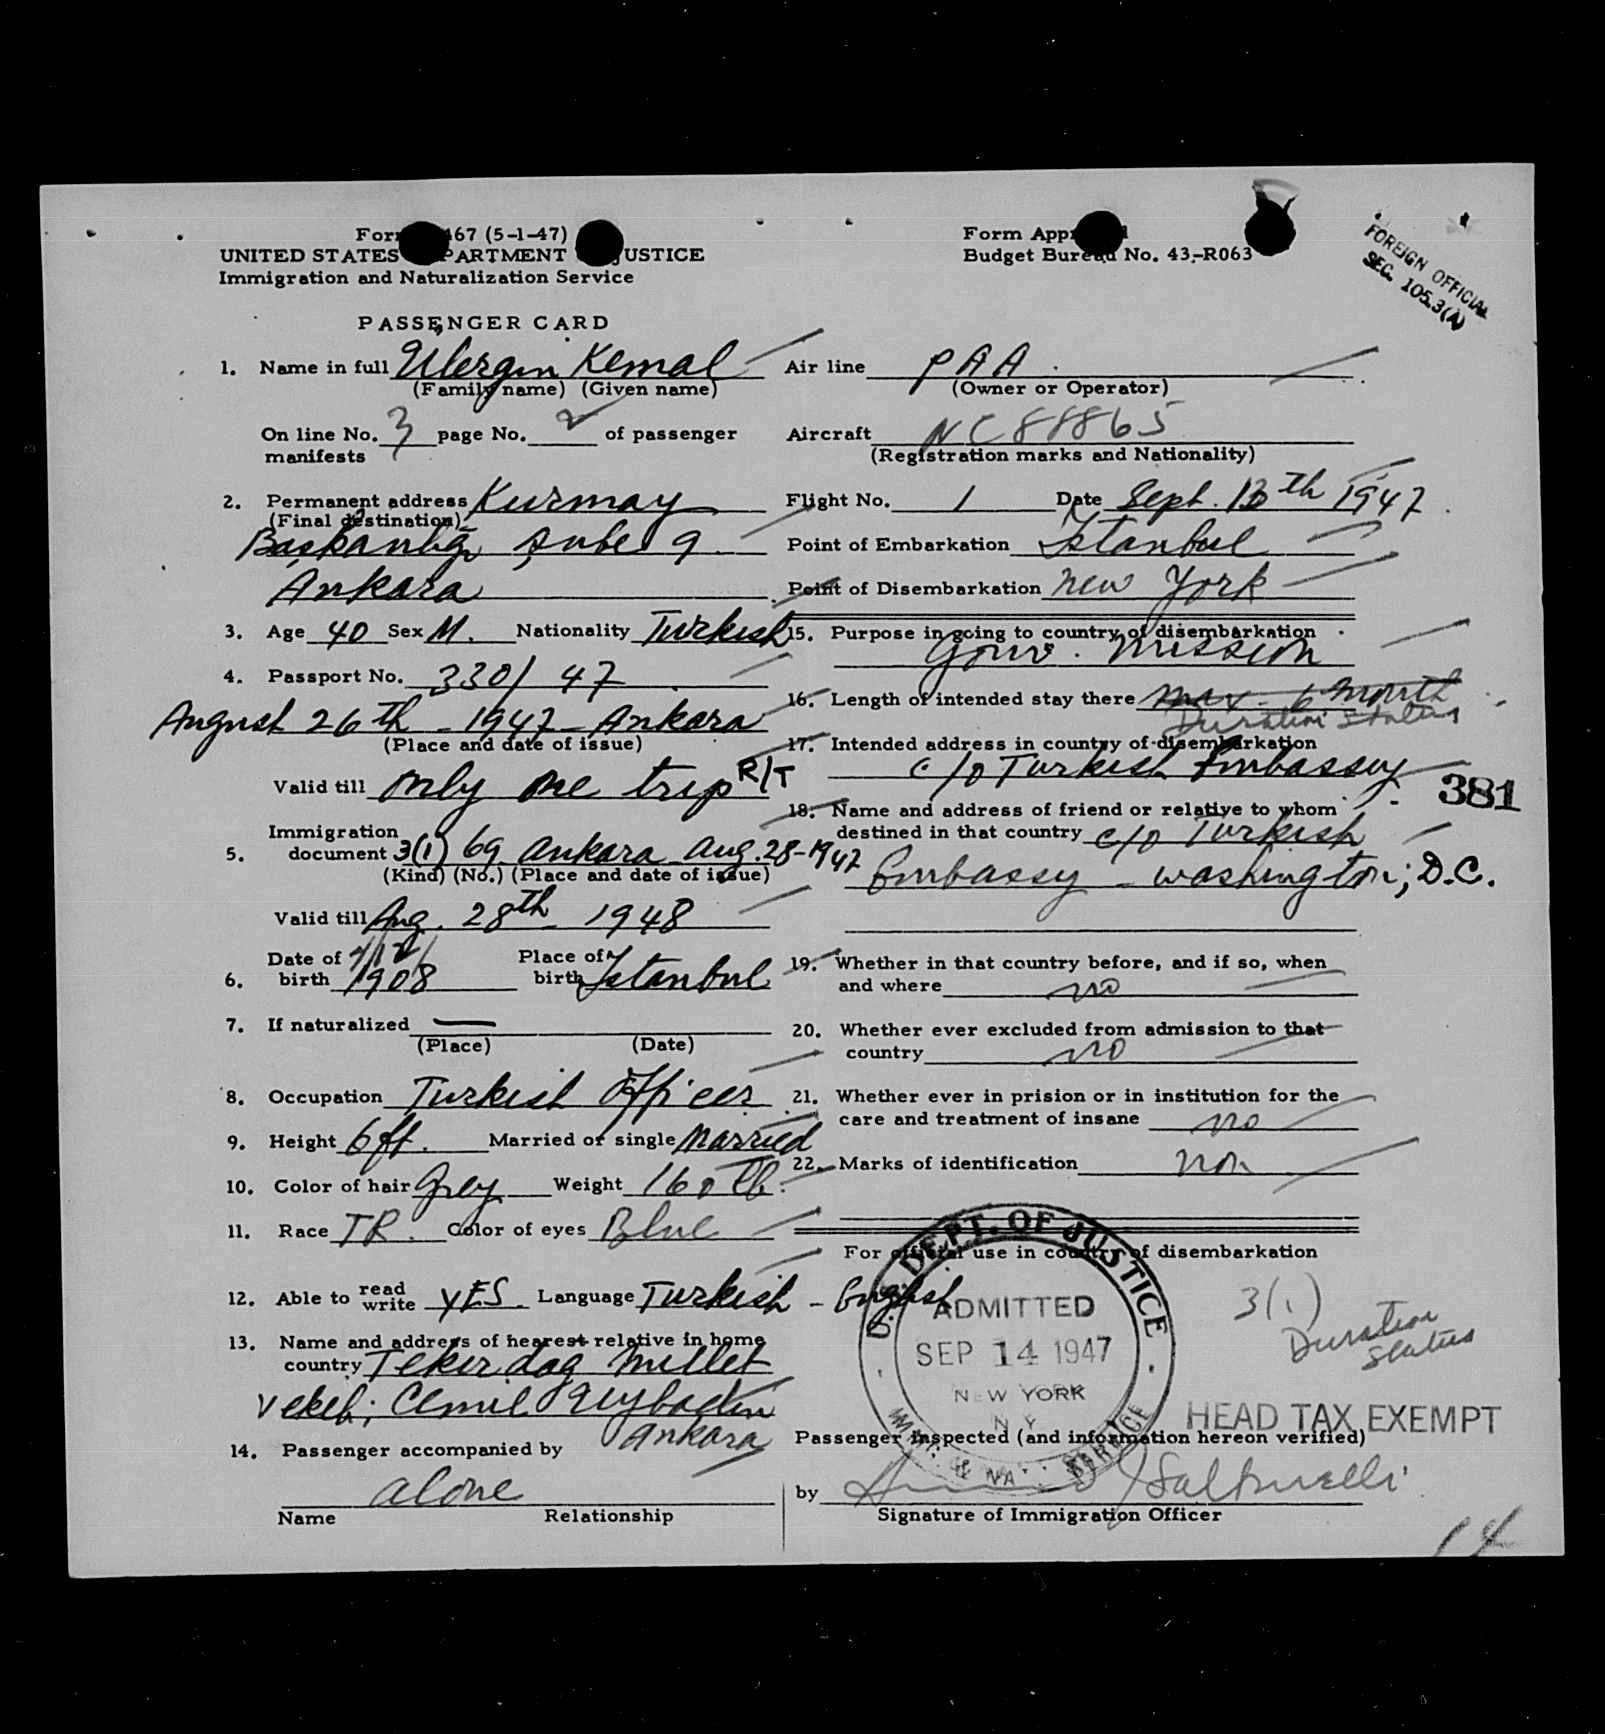 Form 467 (5-1-47)
UNITED STATES PARTMENT JUSTICE
Immigration and Naturalization Service
PASSENGER CARD
1. Name in full Ulergin Kemal
(Family name) (Given name)
On line No. 3 page No. 2 of passenger
manifests
2. Permanent address Kurmay
(Final destination)
Başkanlığı Şube 9
Ankara
3. Age 40 Sex M. Nationality Turkish
4. Passport No. 330/47
August 26th - 1947 - Ankara
(Place and date of issue)
Valid till only one trip R/T
Immigration
5. document 3(1) 69 Ankara Aug. 28-1947
(Kind) (No.) (Place and date of issue)
Valid till Aug. 28th 1948
Date of Place of
6. birth 1908 birth Istanbul
7. If naturalized —
(Place) (Date)
8. Occupation Turkish Officer
9. Height 6 ft. Married or single Married
10. Color of hair Grey Weight 160 lb.
11. Race TR. Color of eyes Blue
12. Able to read write YES. Language Turkish - English
13. Name and address of nearest relative in home
country Tekirdag Millet
vekili; Cemil Uybadin
Ankara
14. Passenger accompanied by
alone
Name Relationship
Form App
Budget Bureau No. 43-R063
FOREIGN OFFICIAL
SEC. 105.3(A)
Air line PAA
(Owner or Operator)
Aircraft NC88865
(Registration marks and Nationality)
Flight No. 1 Date Sept. 13th 1947
Point of Embarkation Istanbul
Point of Disembarkation New York
15. Purpose in going to country of disembarkation
Gouv. Mission
16. Length of intended stay there max - 6 month
Duration Status
17. Intended address in country of disembarkation
c/o Turkish Embassy
381
18. Name and address of friend or relative to whom
destined in that country c/o Turkish
Embassy - Washington; D.C.
19. Whether in that country before, and if so, when
and where no
20. Whether ever excluded from admission to that
country no
21. Whether ever in prision or in institution for the
care and treatment of insane no
22. Marks of identification non
For official use in country of disembarkation
U.S. DEPT. OF JUSTICE
ADMITTED
SEP 14 1947
NEW YORK
N Y
IMM. & NA SERVICE
3(1)
Duration
status
HEAD TAX EXEMPT
Passenger inspected (and information hereon verified)
by
Signature of Immigration Officer
14